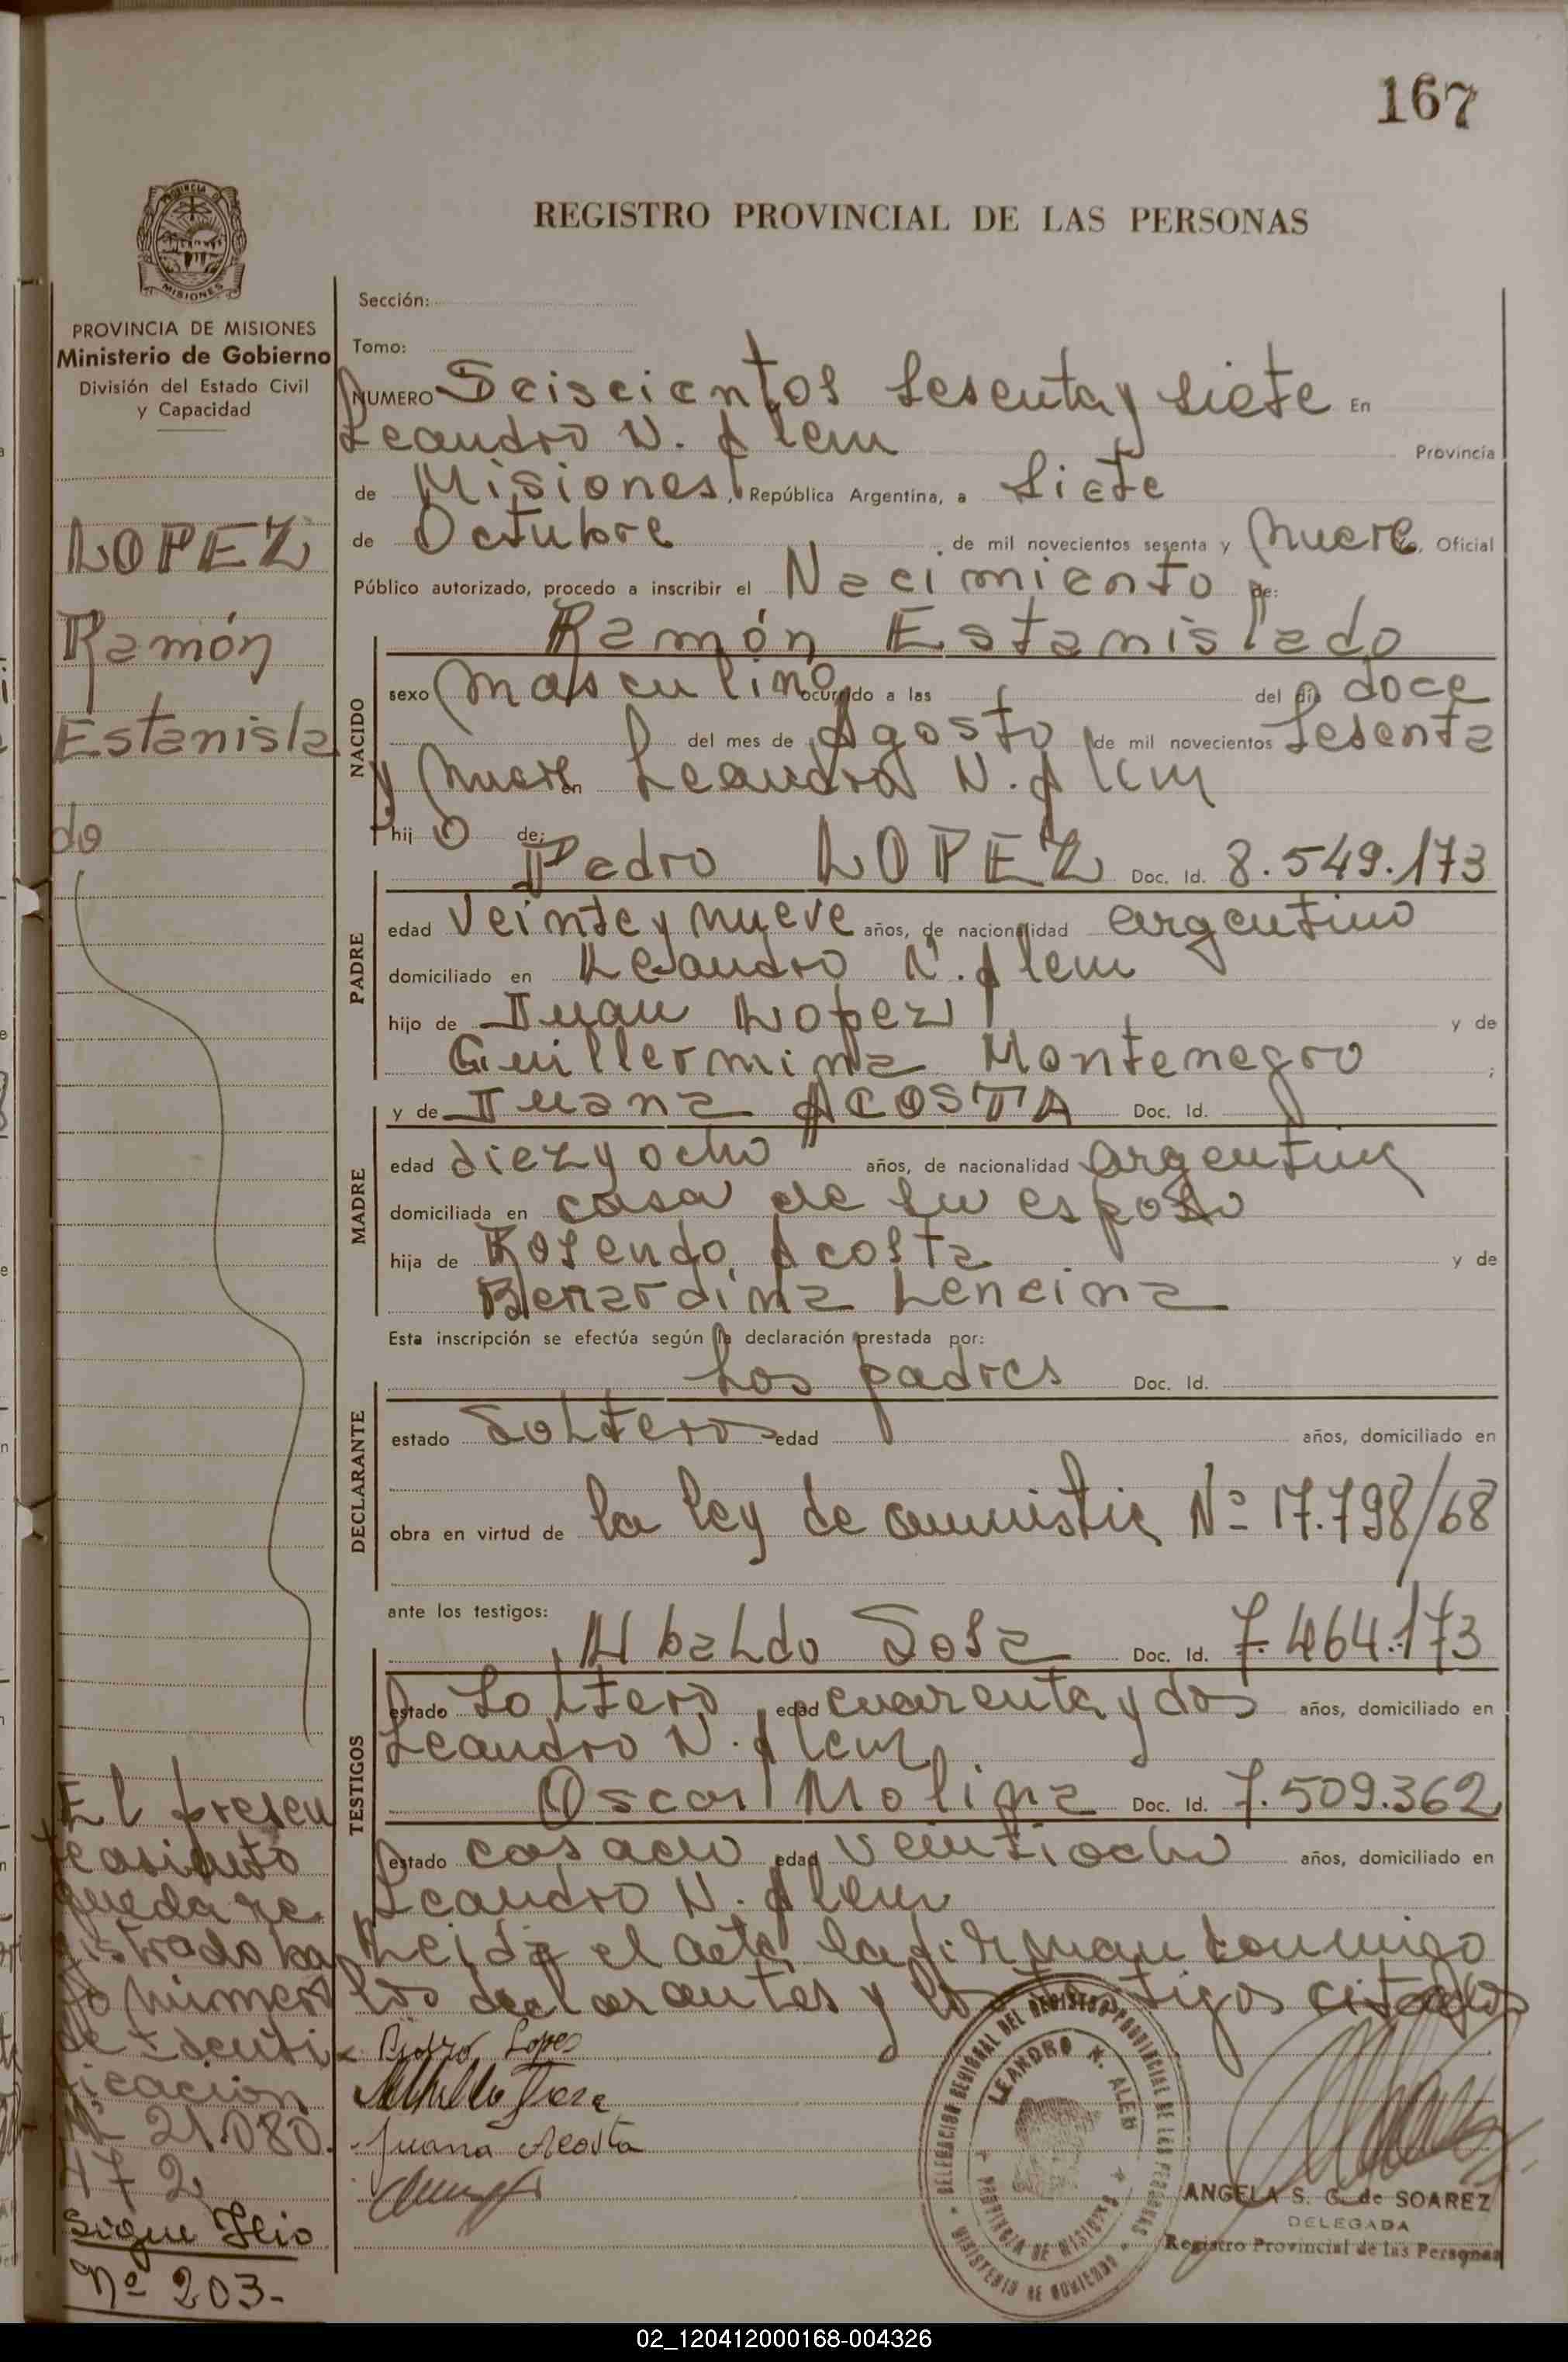 167
PROVINCIA DE MISIONES
PROVINCIA DE MISIONES
Ministerio de Gobierno
División del Estado Civil
y Capacidad
LOPEZ
Ramón
Estanisla
do
El presen
te asiento
queda re
gistrado ba
jo número
de Identi
ficación
Nº 21.080.
472
Sigue Flio
Nº 203-
REGISTRO PROVINCIAL DE LAS PERSONAS
Sección:
Tomo:
NUMERO Seiscientos Sesenta y Siete En
Leandro N. Alem Provincia
de Misiones, República Argentina, a Siete
de Octubre de mil novecientos sesenta y nueve, Oficial
Público autorizado, procedo a inscribir el Nacimiento de:
Ramón Estanislado
NACIDO
sexo masculino ocurrido a las del día doce
del mes de Agosto de mil novecientos Sesenta
y nueve en Leandro N. Alem
hijo de:
Pedro LOPEZ Doc. Id. 8.549.173
PADRE
edad Veinte y nueve años, de nacionalidad argentino
domiciliado en Leandro N. Alem
hijo de Juan Lopez y de
Guillermina Montenegro ;
y de Juana ACOSTA Doc. Id.
MADRE
edad diez y ocho años, de nacionalidad argentina
domiciliada en casa de su esposo
hija de Rosendo Acosta y de
Berardina Lencina
Esta inscripción se efectúa según la declaración prestada por:
Los padres Doc. Id.
DECLARANTE
estado Solteros edad años, domiciliado en
obra en virtud de la ley de amnistia Nº 17.798/68
ante los testigos:
Ubaldo Sosa Doc. Id. 7.464.173
TESTIGOS
estado Soltero edad cuarenta y dos años, domiciliado en
Leandro N. Alem
Oscar Molina Doc. Id. 7.509.362
estado casado edad veintiocho años, domiciliado en
Leandro N. Alem
Leida el acta la firman conmigo
los declarantes y los testigos citados
Lopez
Juana Acosta
DELEGACION REGIONAL DEL REGISTRO PROVINCIAL DE LAS PERSONAS
MINISTERIO DE GOBIERNO
LEANDRO N. ALEM
PROVINCIA DE MISIONES
ANGELA S. G. de SOAREZ
DELEGADA
Registro Provincial de las Personas
02_120412000168-004326